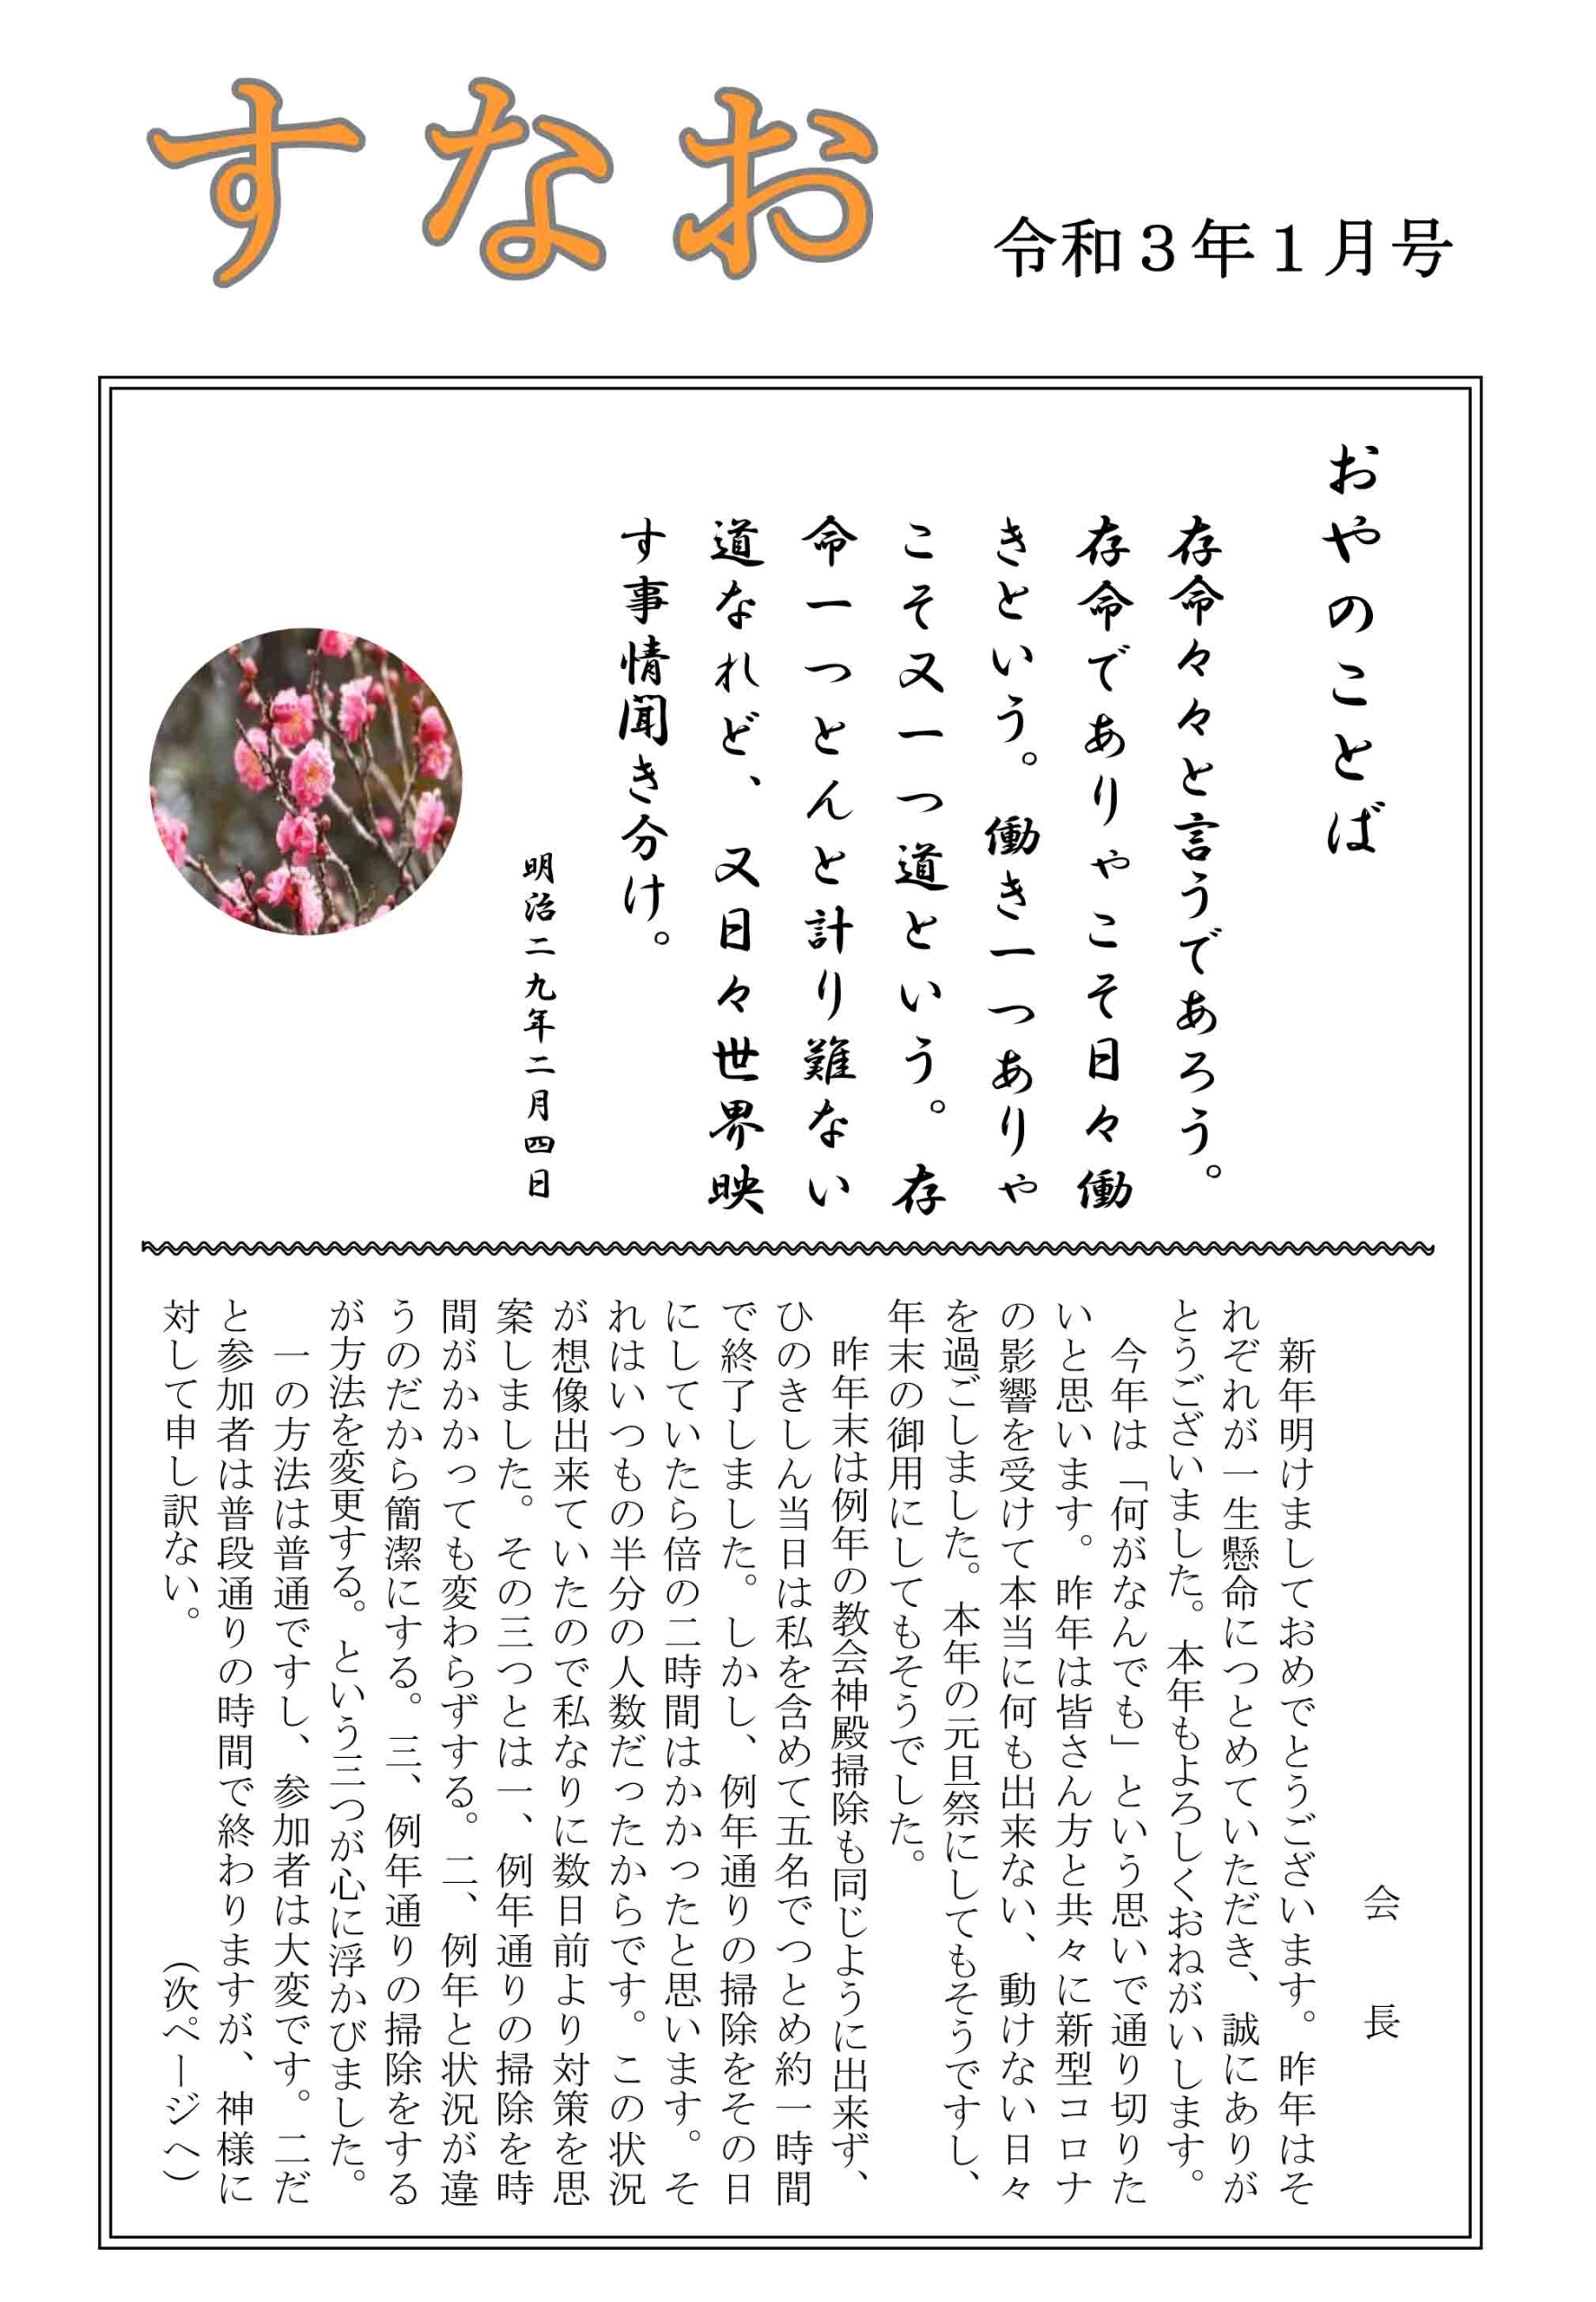 すなお
令和３年１月号
おやのことば
存命々々と言うであろう。
存命でありゃこそ日々働
きという。働き一つありゃ
こそ又一つ道という。存
命一つとんと計り難ない
道なれど、又日々世界映
す事情聞き分け。
明治二九年二月四日
会　長
　新年明けましておめでとうございます。昨年はそ
れぞれが一生懸命につとめていただき、誠にありが
とうございました。本年もよろしくおねがいします。
　今年は「何がなんでも」という思いで通り切りた
いと思います。昨年は皆さん方と共々に新型コロナ
の影響を受けて本当に何も出来ない、動けない日々
を過ごしました。本年の元旦祭にしてもそうですし、
年末の御用にしてもそうでした。
　昨年末は例年の教会神殿掃除も同じように出来ず、
ひのきしん当日は私を含めて五名でつとめ約一時間
で終了しました。しかし、例年通りの掃除をその日
にしていたら倍の二時間はかかったと思います。そ
れはいつもの半分の人数だったからです。この状況
が想像出来ていたので私なりに数日前より対策を思
案しました。その三つとは一、例年通りの掃除を時
間がかかっても変わらずする。二、例年と状況が違
うのだから簡潔にする。三、例年通りの掃除をする
が方法を変更する。という三つが心に浮かびました。
　一の方法は普通ですし、参加者は大変です。二だ
と参加者は普段通りの時間で終わりますが、神様に
対して申し訳ない。
（次ページへ）